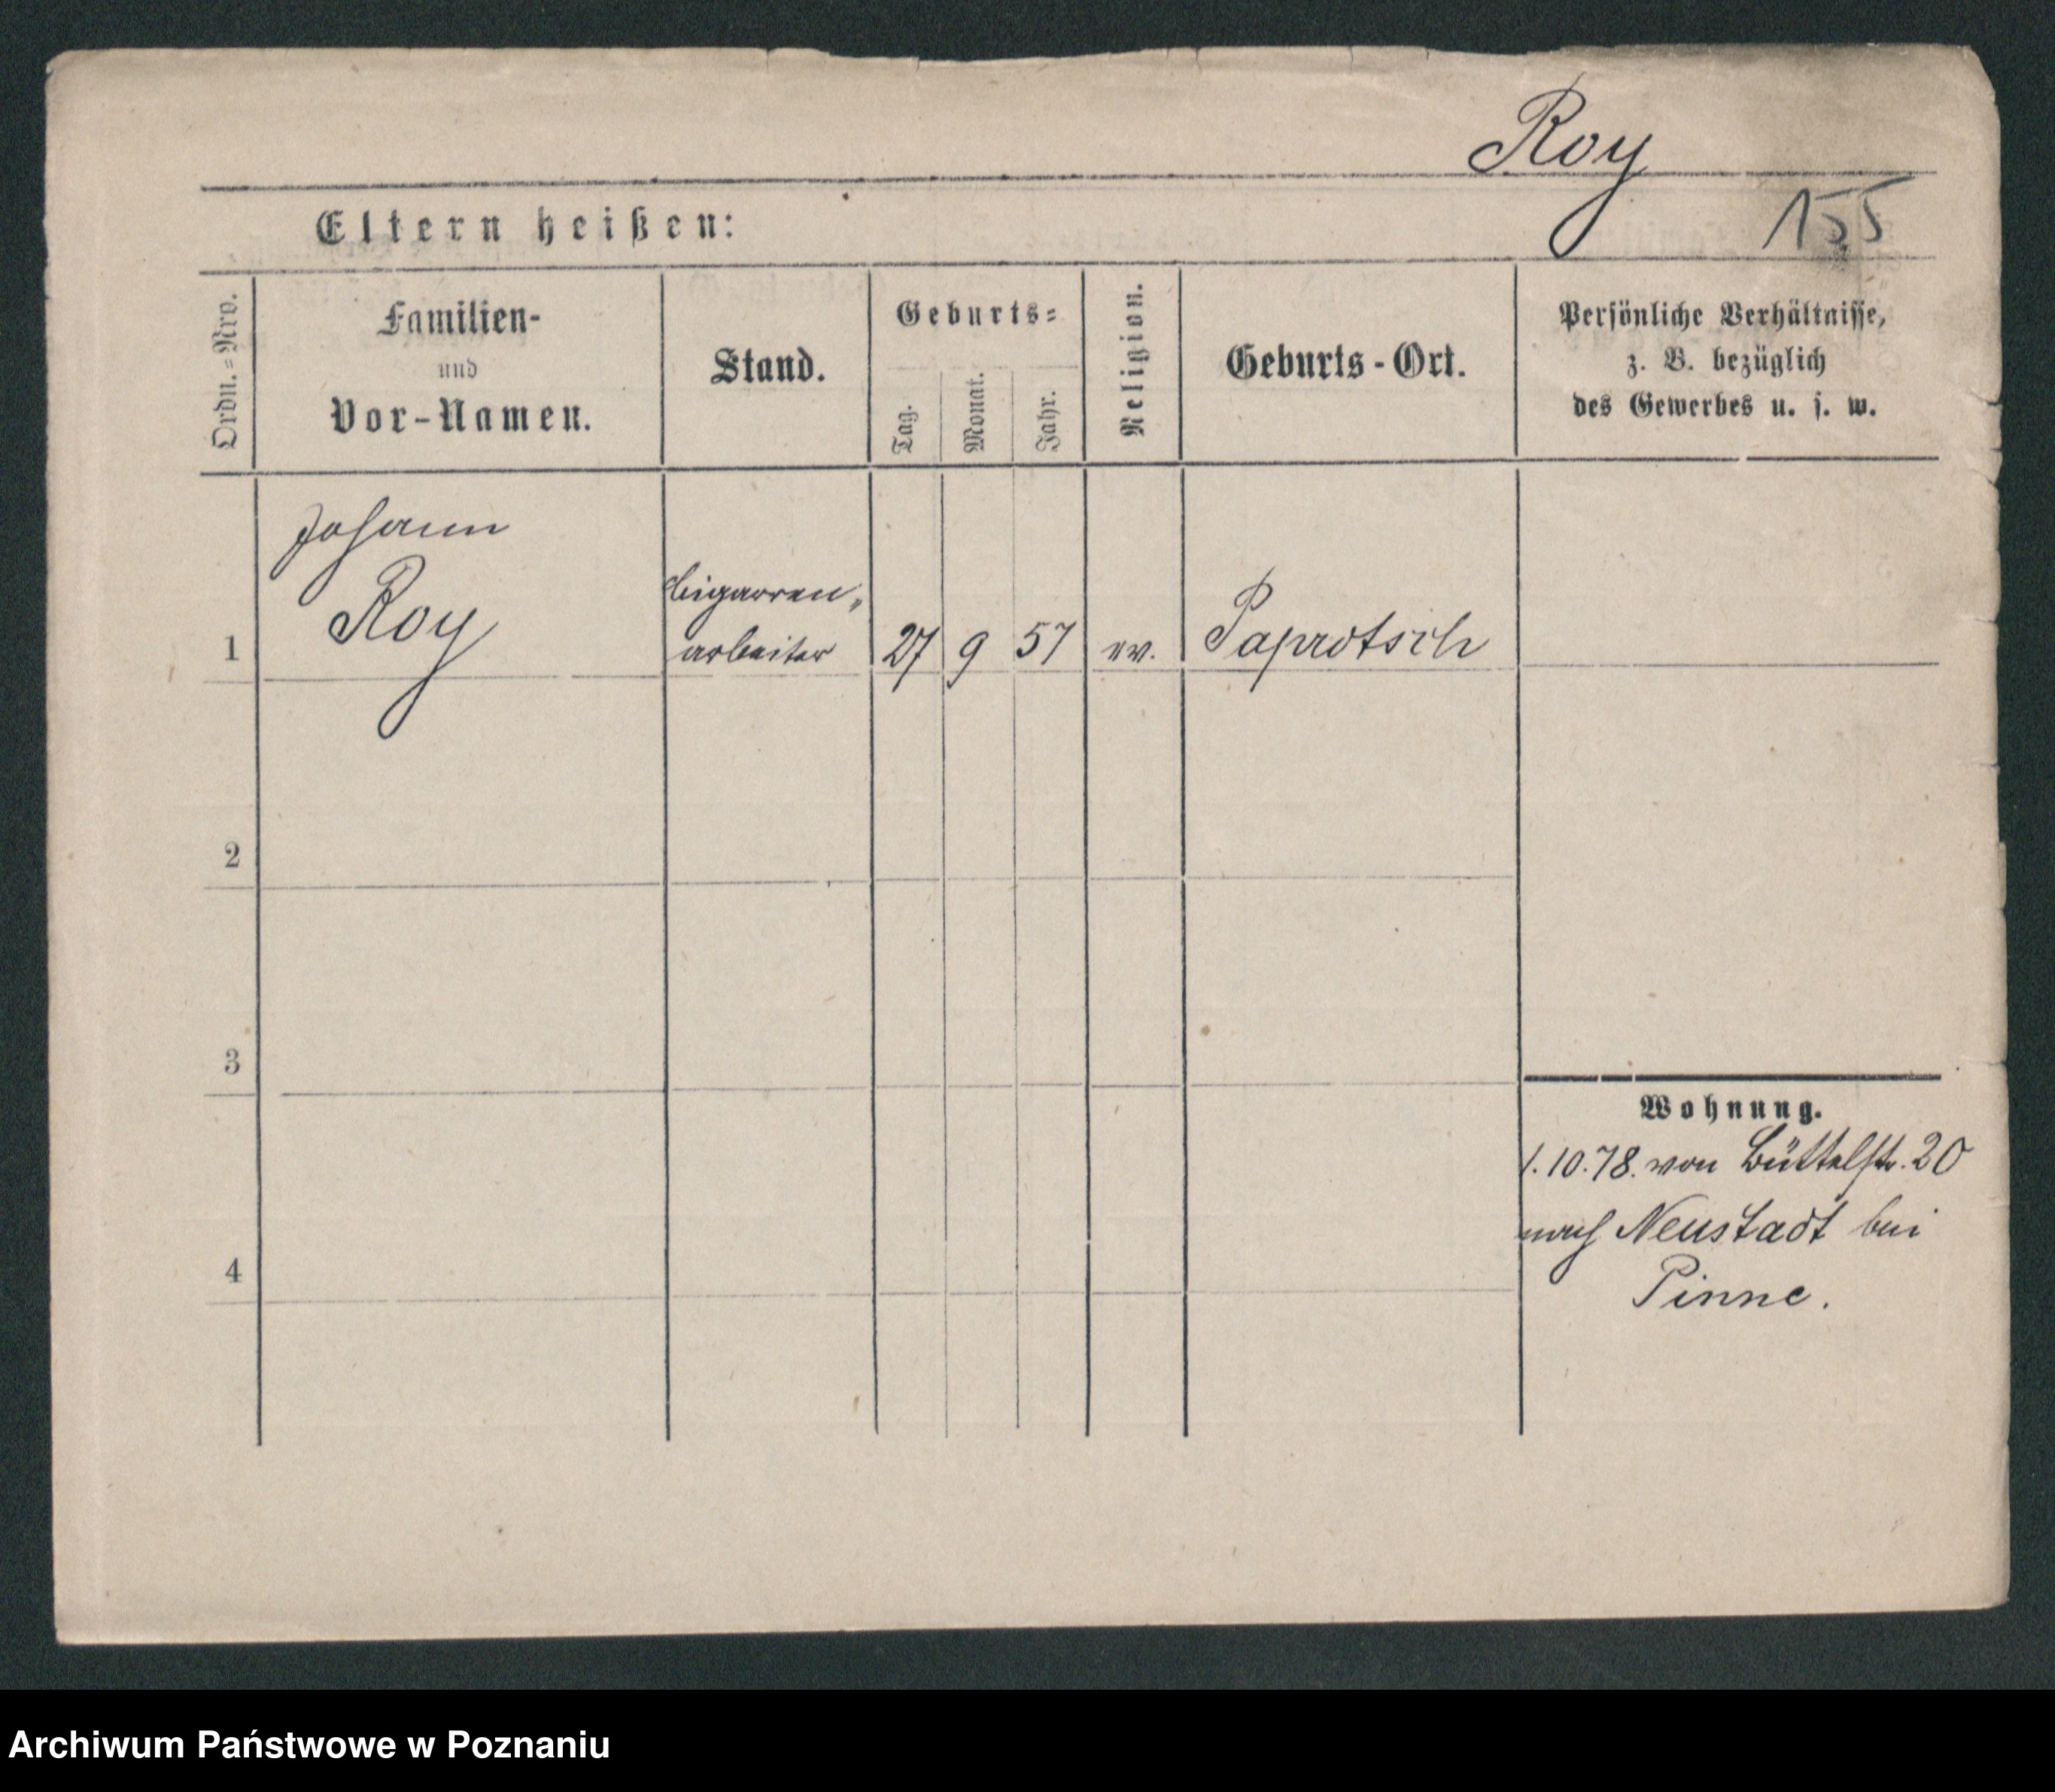 Roy
155
Eltern heißen:
Ordn.-Nro.
Familien-
und
Vor-Namen.
Stand.
Geburts-
Tag.
Monat.
Jahr.
Religion.
Geburts-Ort.
Persönliche Verhältnisse,
z. B. bezüglich
des Gewerbes u. s. w.
Johann
Roy
Cigarren-
arbeiter
1
27
9
57
ev.
Paprotsch
2
3
4
Wohnung.
1.10.78. von Büttelstr. 20
nach Neustadt bei
Pinne.
Archiwum Państwowe w Poznaniu